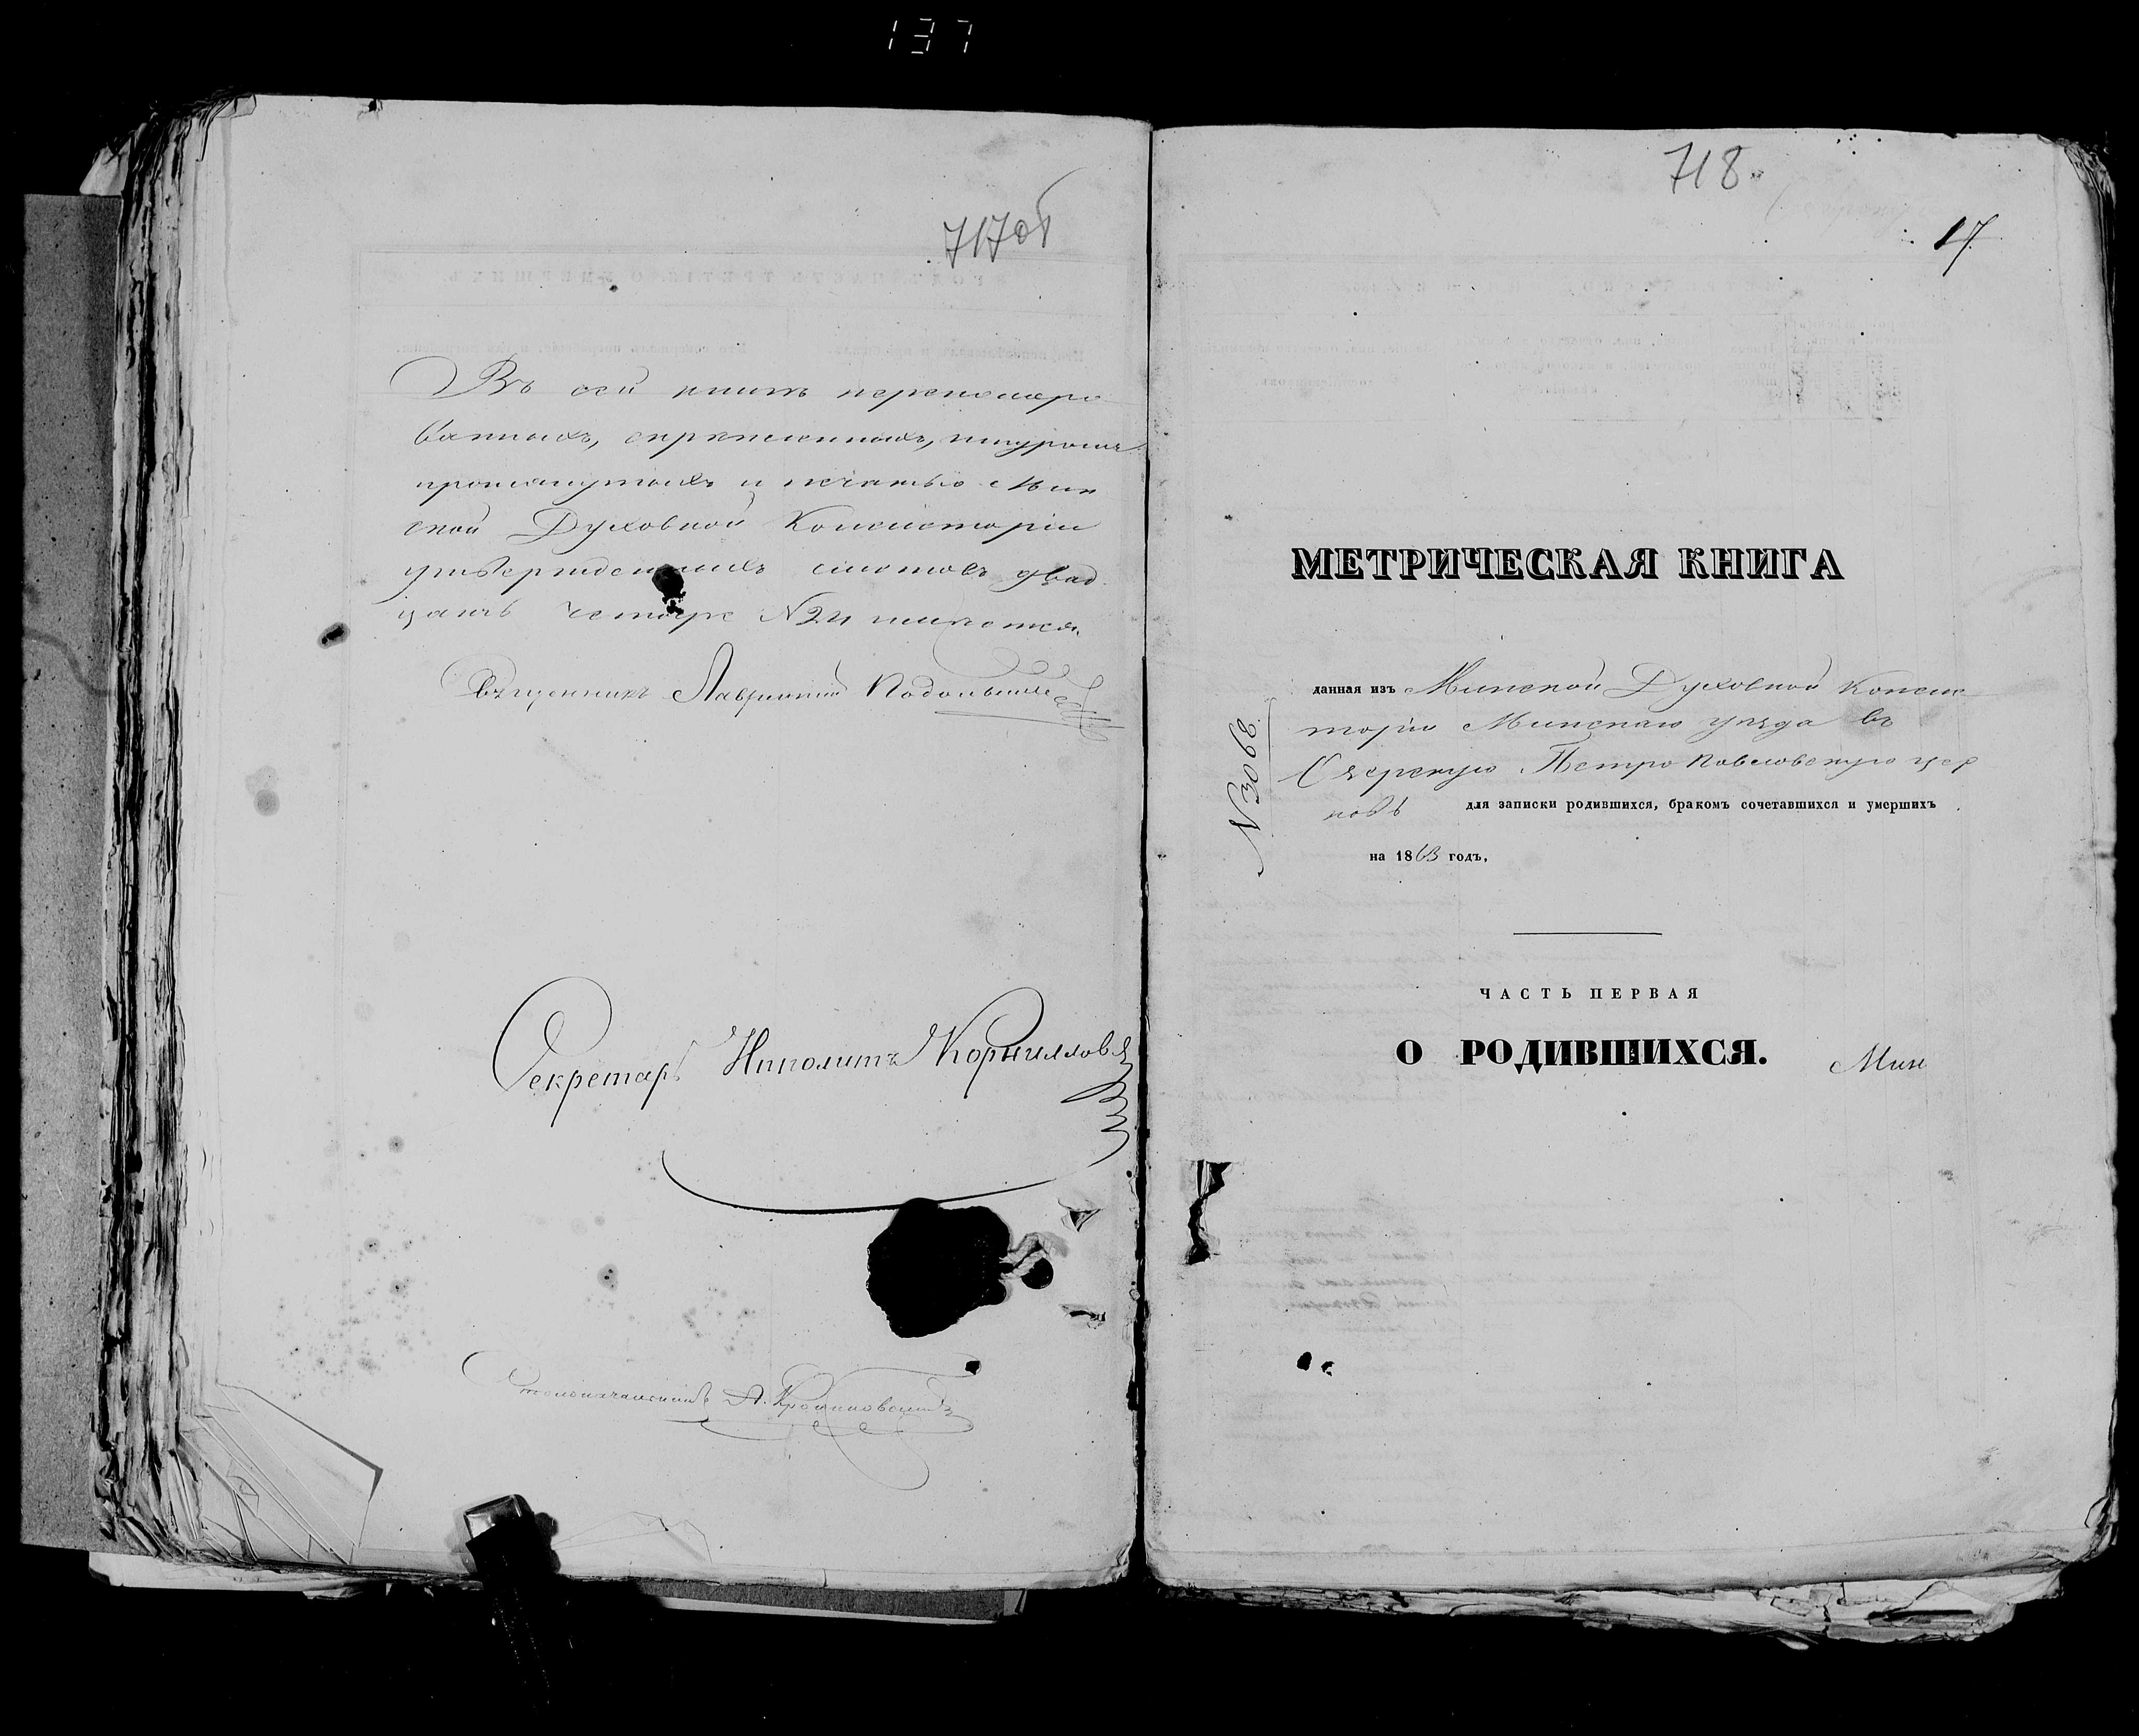 137
717об
Въ сей книгѣ перенумеро
ванныхъ, скрѣпленныхъ, шнуромъ
прошнурованныхъ и печатью Мин
ской Духовной Консисторіи
утвержденныхъ листовъ двад
цать четыре №24 имѣется.
Священникъ Лаврентій
Секретарь Ипполитъ Корниловъ
Столоначальникъ А.
718
17
МЕТРИЧЕСКАЯ КНИГА
данная изъ Минской Духовной Консис
торіи Минскаго уѣзда въ
Петро Павловскую цер
ковь для записки родившихся, бракомъ сочетавшихся и умершихъ
на 1863 годъ.
№3068
ЧАСТЬ ПЕРВАЯ
О РОДИВШИХСЯ.
Мин